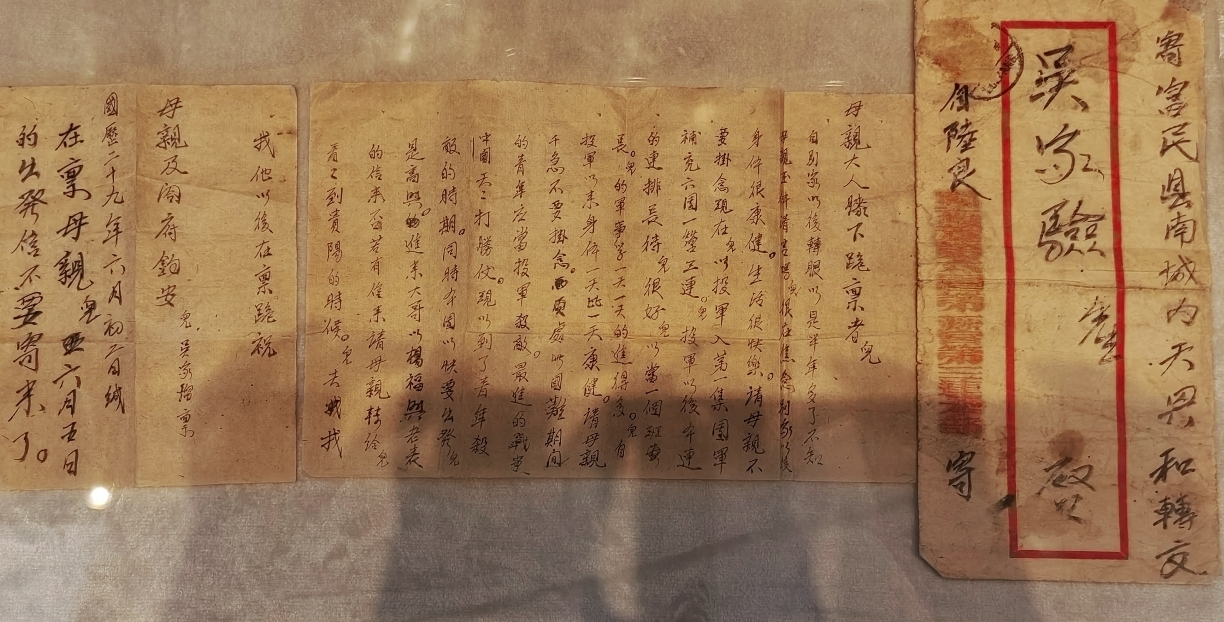 寄富民县南城内天興和轉交
吴家驗
啓
自陸良
寄
母親大人膝下跪禀者兒
自別家以後轉眼以是半年多了不知
身件很康健。生活很快樂。請母親不
要掛念現在兒以投軍入第一集團軍
補充六团一營三連。兒投軍以後本連
的連排長待兒很好兒以當一個班
長。兒的軍事學一天一天的進得多。兒自
投軍以来身件一天比一天康健。請母親
千急不要掛念。處此國難期间
的青年应當投軍殺敵。最進的戰事
中國天々打勝仗。現以到了青年殺
敵的時期。同時本团以快要出發兒
是高興進来大哥以楊福興老表
的信来否若有信来請母親轉给兒
看々到貴陽的時候。兒去我
我他以後在禀跪祝
母親及閤府鈞安
兒 吴家 禀
國歷二十九年六月初二日缄
在禀母親兒 六月五日
的出發信不要寄来了。